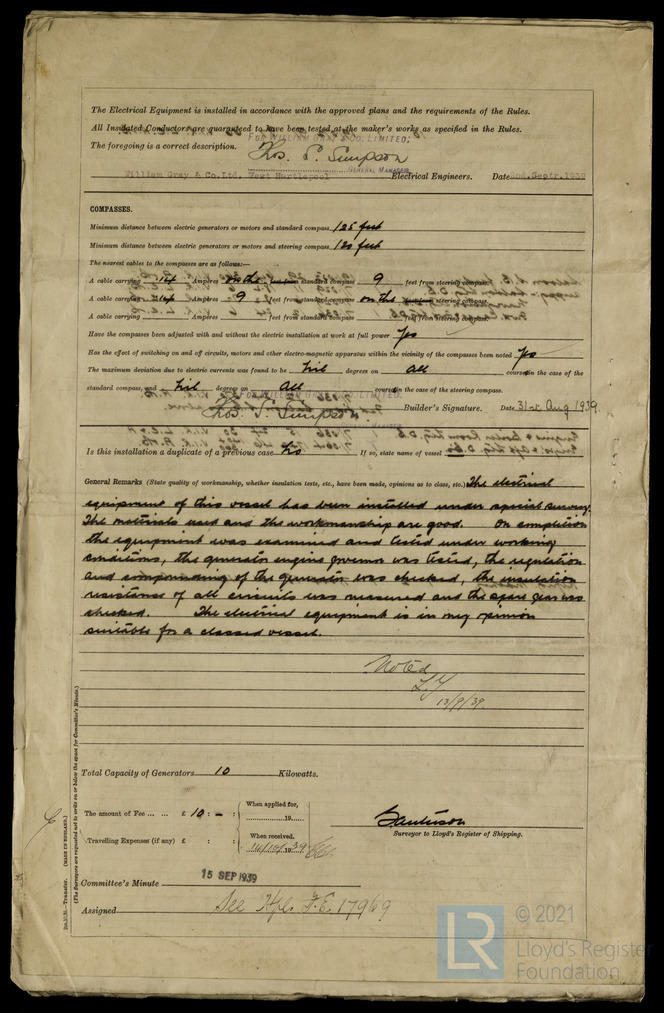 The Electrical Equipment is installed in accordance with the approved plans and the requirements of the Rules.
All Insulated Conductors are guaranteed to have been tested at the maker's works as specified in the Rules.
FOR WILLIAM GRAY & CO. LIMITED,
The foregoing is a correct description.
Thos. S. Simpson
GENERAL MANAGER
William Gray & Co. Ltd. West Hartlepool Electrical Engineers. Date 2nd. Septr. 1939
COMPASSES.
Minimum distance between electric generators or motors and standard compass 125 feet
Minimum distance between electric generators or motors and steering compass 120 feet
The nearest cables to the compasses are as follows:—
A cable carrying .14 Amperes on the standard compass 9 feet from steering compass.
A cable carrying .14 Amperes 9 feet from standard compass on the steering compass.
A cable carrying Amperes feet from standard compass feet from steering compass.
Have the compasses been adjusted with and without the electric installation at work at full power Yes
Has the effect of switching on and off circuits, motors and other electro-magnetic apparatus within the vicinity of the compasses been noted Yes
The maximum deviation due to electric currents was found to be Nil degrees on All course in the case of the
standard compass, and Nil degrees on All course in the case of the steering compass.
FOR WILLIAM GRAY & CO. LIMITED,
Thos. S. Simpson Builder's Signature. Date 31st Aug 1939.
Is this installation a duplicate of a previous case No If so, state name of vessel
General Remarks (State quality of workmanship, whether insulation tests, etc., have been made, opinions as to class, etc.) The electrical
equipment of this vessel has been installed under special survey.
The materials used and the workmanship are good. On completion
the equipment was examined and tested under working
conditions, the generator engine governor was tested, the regulation
and compounding of the generator was checked, the insulation
resistance of all circuits was measured and the spare gear was
checked. The electrical equipment is in my opinion
suitable for a classed vessel.
Noted
13/9/39.
Total Capacity of Generators 10 Kilowatts.
The amount of Fee ... ... £ 10 : - :
When applied for,
19
Travelling Expenses (if any) £ : :
When received,
14/10/1939
Surveyor to Lloyd's Register of Shipping.
Committee's Minute 15 SEP 1939
Assigned See Hpl. F.E. 17969
(MADE IN ENGLAND.)
(The Surveyors are requested not to write on or below the space for Committee's Minute.)
LR
© 2021
Lloyd's Register
Foundation